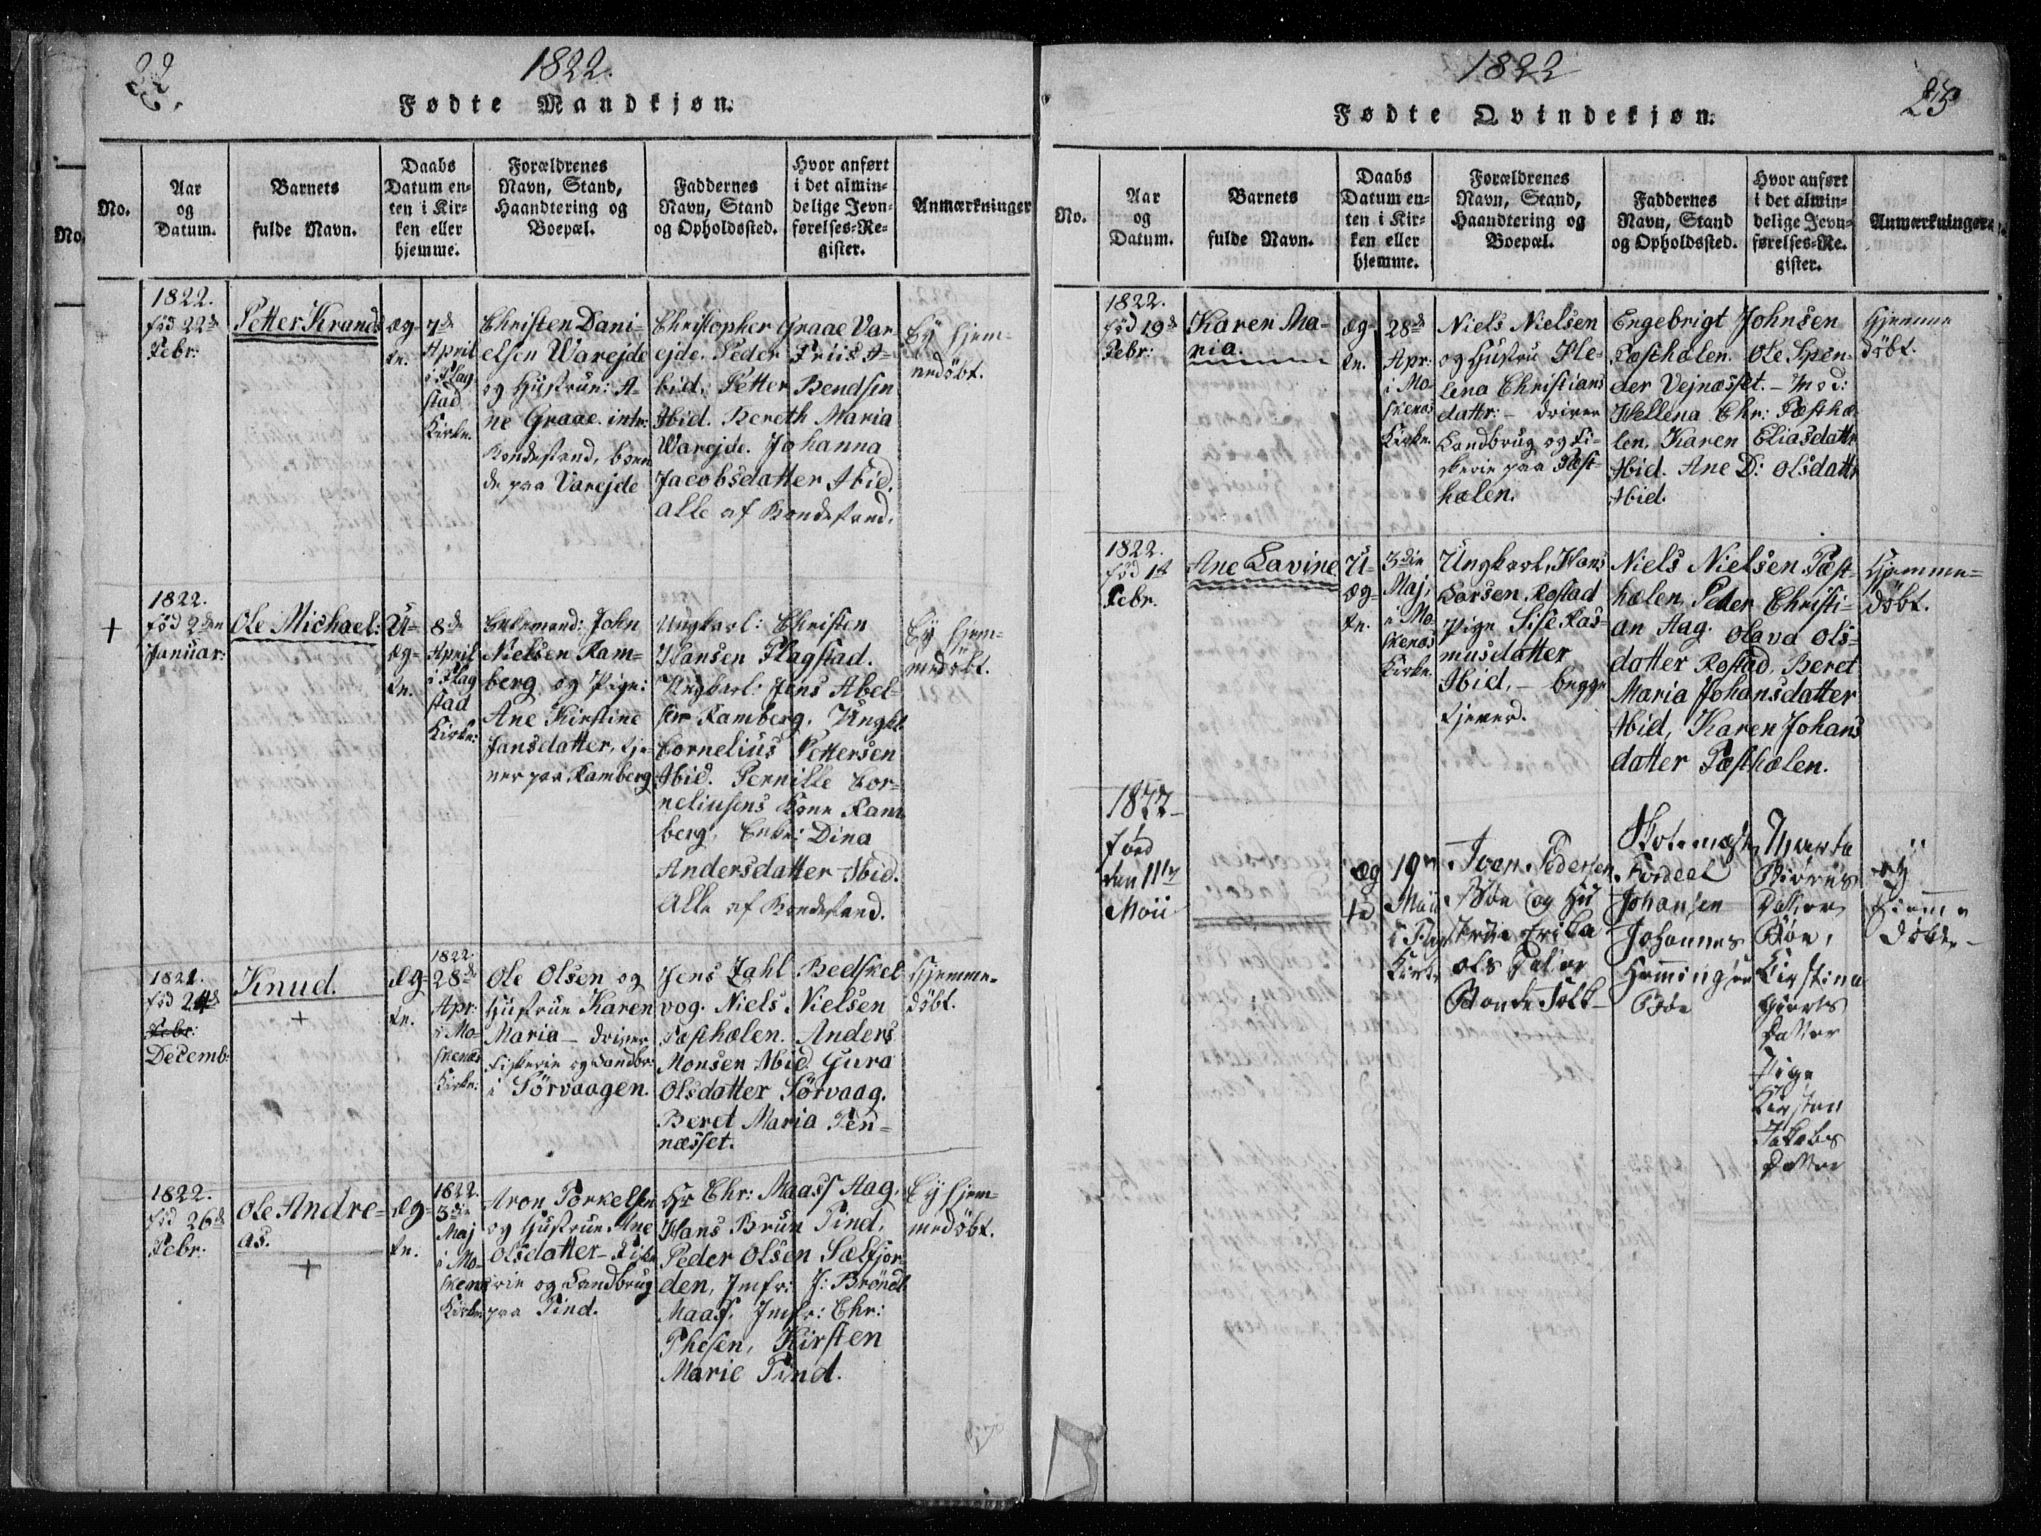 22
1822.
Fødte Mandkjøn.
No.
No.
Aar
og
Datum.
Barnets
fulde Navn.
Daabs
Datum en-
ten i Kir-
ken eller
hjemme.
Forældrenes
Navn, Stand,
Haandtering og
Boepæl.
Faddernes
Navn, Stand
og Opholdssted.
Hvor anført
i det almin-
delige Jevn-
førelses-Re-
gister.
Anmærkninger
1822.
fød 22de
Febr:
Petter Krands
æg-
te.
7de
April
i Flag
stad
Kirke.
Christen Dani-
elsen Warejde
og Hustrue: A-
ne Graae. intr:
Bondestand, boen
de paa Varejde
Christopher Graae Var
ejde. Peder Friis A-
bid. Petter Bendsen
Ibid. Bereth Maria
Warejde. Johanna
Jacobsdatter Ibid.
alle af Bondestand.
Ey hjem-
medøbt.
+
1822.
fød 2den
Januar:
Ole Michael:
U-
æg-
te.
8de
April
i Flag
stad
Kirke:
Enkemand: John
Nielsen Ram-
berg og Pige:
Ane Kirstine
Jansdatter, tje-
ner paa Ramberg
Ungkarl: Christen
Hansen Flagstad.
Ungkarl: Jens Abel-
sen Ramberg, Ungkl.
Cornelius Pettersen
Ibid. Pernille Cor-
neliusens Kone Ram
berg, Enke: Dina
Andersdatter Ibid.
Alle af Bondestand.
Ey hjem-
medøbt.
1821.
fød 24de
Febr:
Decemb
Knud.
+
æg-
te.
1822.
28de
Apr:
i Mo-
skenæs
Kirke:
Ole Olsen og
Hustrue Karen
Maria – driver
Fiskerie og Landbr:
i Sørvaagen.
Jens Zahl Bedskel
vog. Niels Nielsen
Pæsthælen. Anders
Monsen Ibid. Gura
Olsdatter Sørvaag.
Beret Maria Ten-
næsset.
Hjemme-
døbt.
1822.
fød 26de
Febr.
Ole Andre-
as.
+
æg-
te.
1822.
3die
Maj
i Mo-
skenæs
Kirke
Aron Torkelsen
og Hustrue Ane
Olsdatter – Fiske
rie og Landbrug
paa Tind.
Hr Chr: Maass Aag,
Hans Brun Tind,
Peder Olsen Sælfjor-
den, Jmfr: J: Brøndl
Maass, Jmfr: Chr:
Thesen, Kirsten
Marie Tind.
Ey hjem-
medøbt.
1822
23
Fødte Qvindekjøn.
No.
Aar
og
Datum.
Barnets
fulde Navn.
Daabs
Datum en-
ten i Kir-
ken eller
hjemme.
Forældrenes
Navn, Stand,
Haandtering og
Boepæl.
Faddernes
Navn, Stand
og Opholdssted.
Hvor anført
i det almin-
delige Jevn-
førelses-Re-
gister.
Anmærkninger.
1822.
fød 19de
Febr:
Karen Ma-
ria.
æg-
te.
28de
Apr:
i Mo-
skenæs
Kirke.
Niels Nielsen
og Hustru Hle-
lena Christians
dattr: – driver
Landbrug og Fi-
skerie paa Pæst-
hælen.
Engebrigt Johnsen
Pæsthælen. Ole Spen-
der Vejnæsset. – Mad:
Hellena Chr: Pæsthæ-
len. Karen Eliasdattr
Ibid. Ane D: Olsdattr
Ibid.
Hjemme
døbt.
1822.
fød 1st
Febr.
Ane Lavine
U-
æg-
te.
3die
Maj
i Mo-
skenæs
Kirke.
Ungkarl, Hans
Larsen Rostad
Pige Sise Ras-
musdatter
Ibid. – begge
tjenend.
Niels Nielsen Pæst-
hælen, Peter Christi-
an Aag. Olava Ols-
datter Rostad, Beret
Maria Johansdatter
Ibid, Karen Johans
datter Pæsthælen.
Hjemme-
døbt.
1822
Fød
den 11te
Maii
æg
te
19n
Maii
i Flag
Kirke
Iver Pedersen
Bøe og Hu
strue Erika
Ols Datter
Bonde Folk
Johansen
Johannes
Hemmingsen
Bøe
Datter
Bøe,
Kirstina
Giørts
Datter
Pige
Kirsten
Jakobs
Datter
ey
Hiemme
døbt